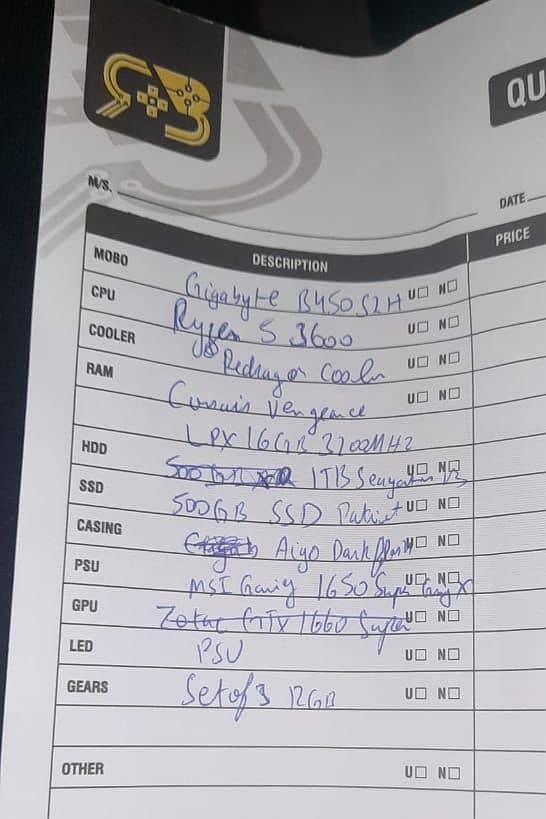 QU
M/S.
DATE
DESCRIPTION PRICE
MOBO Gigabyte B450 S2H U N
CPU Ryzen 5 3600 U N
COOLER Redragon Cooler U N
RAM Corsair Vengeance U N
LPX 16GB 3200MHz
HDD 500GB 1TB U N
SSD 500GB SSD Patriot U N
CASING Aigo Darkflash U N
PSU MSI 1650 Super Gaming X U N
GPU Zotac GTX 1660 Super U N
LED PSU U N
GEARS Set of 3 12GB U N
OTHER U N